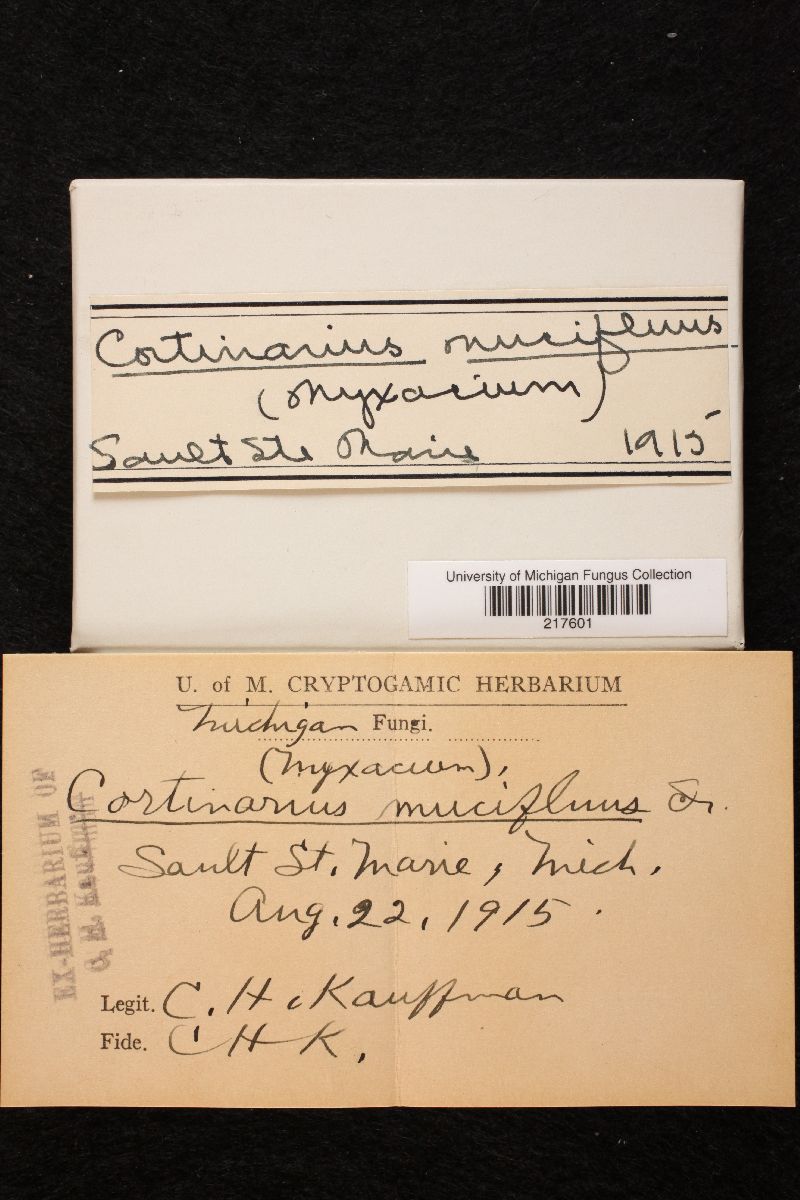 Cortinarius mucifluus
(Myxacium)
Sault Ste Marie 1915
University of Michigan Fungus Collection
217601
U. of M. CRYPTOGAMIC HERBARIUM
Michigan Fungi.
(Myxacium),
Cortinarius mucifluus Fr.
Sault St. Marie, Mich.
Aug. 22, 1915.
Legit. C. H. Kauffman
Fide. C H K.
EX-HERBARIUM OF
C. H. Kauffman